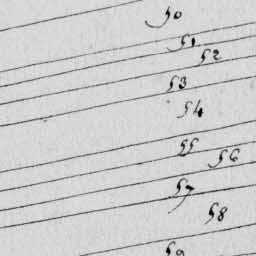 50
51
52
53
54
55
56
57
58
59